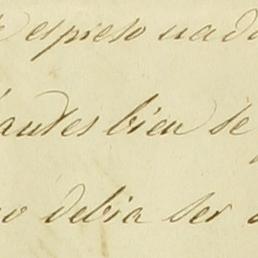 espreso nada
antes bien se
debia ser